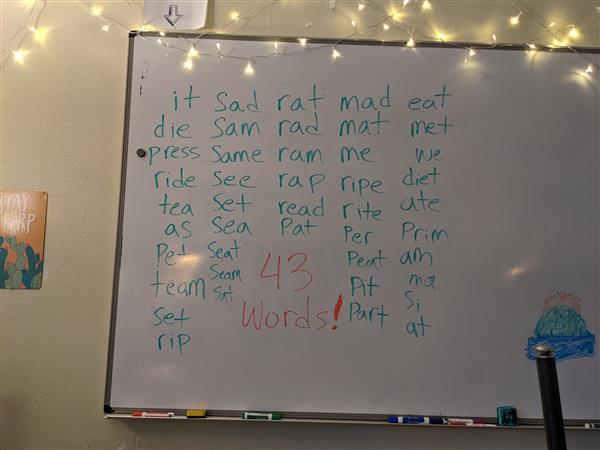 it sad rat mad eat
die Sam rad mat met
press Same ram me we
ride See rap ripe diet
tea Set read rite ate
as Sea Pat Per Prim
Pet Seat Peat am
team Seam Pit ma
set Sat Part si
rip at
43
Words!
STAY